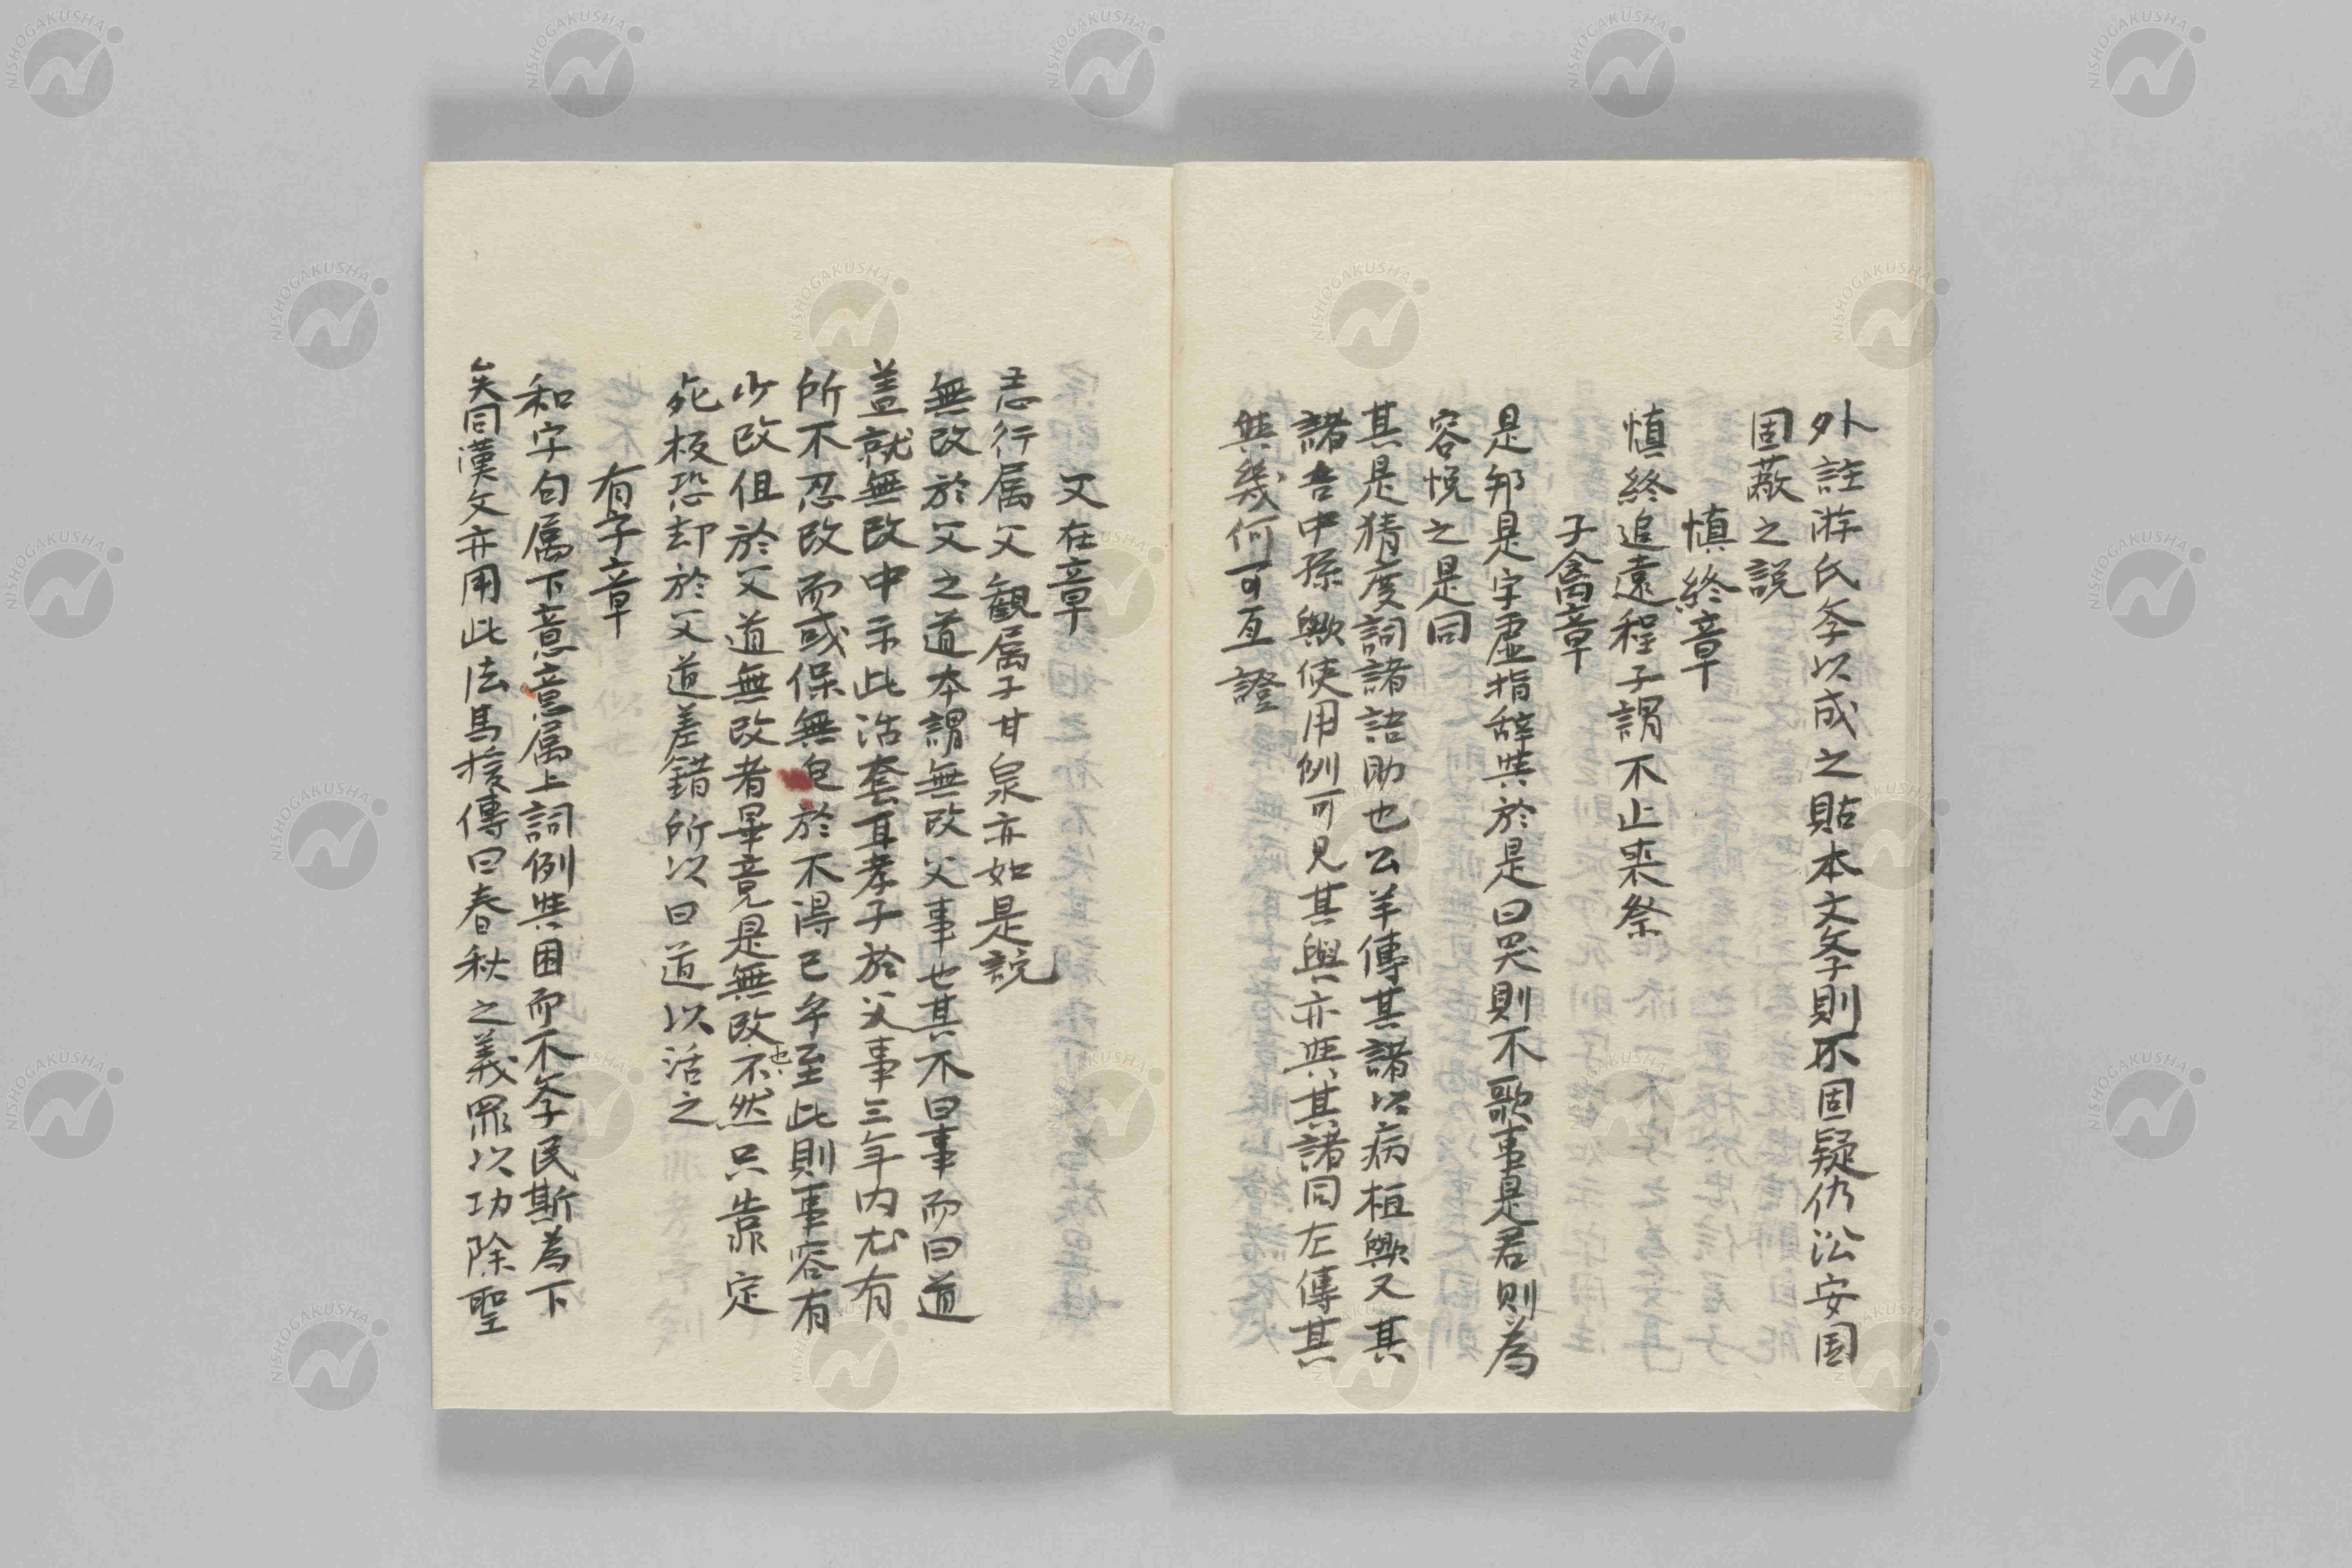 外註游氏斈以成之貼本文斈則不固疑仍沿安国
固蔽之説
慎終章
慎終追遠程子謂不止喪祭
子禽章
是邦是字虚指辞與於是日哭則不歌事是君則為
容悦之是同
其是猜度詞諸語助也公羊傳其諸以病桓歟又其
諸吾中孫歟使用例可見其與亦與其諸同左傳其
與幾何可互證
父在章
志行属父観属子甘泉亦如是説
無改於父之道本謂無改父事也其不曰事而曰道
盖就無改中示此活套耳孝子於父事三年内尤有
所不忍改而或保無包於不得已乎至此則事容有
少改但於父道無改者畢竟是無改也不然只靠定
死板恐却於父道差錯所以曰道以活之
有子章
和字句属下意意属上詞例與困而不斈民斯為下
矣同漢文亦用此法馬援傳曰春秋之義罪以功除聖